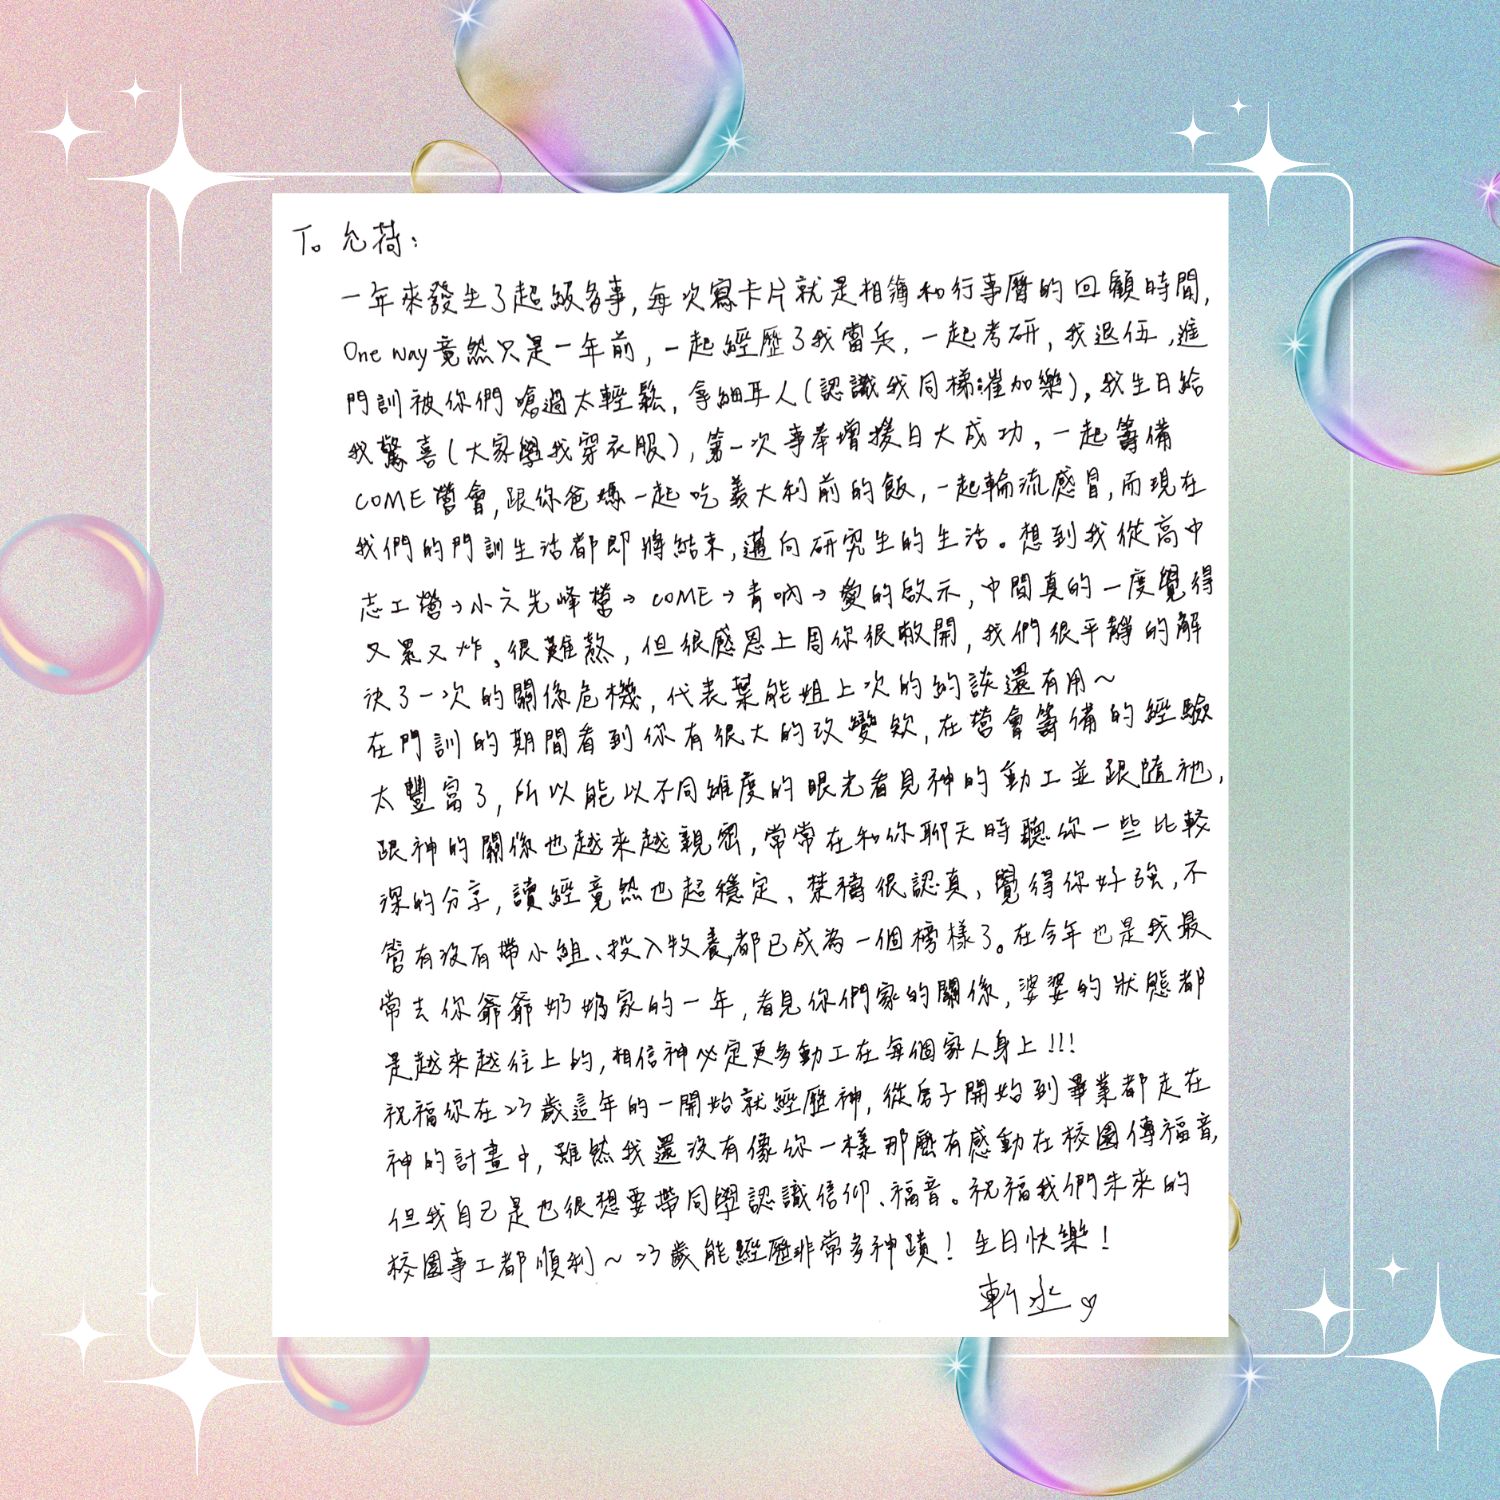 To 允荷:
一年來發生了超級多事,每次寫卡片就是相簿和行事曆的回顧時間,
One way竟然只是一年前,一起經歷了我當兵,一起考研,我退伍,進
門訓被你們嗆過太輕鬆,拿細耳人(認識我同梯:崔加樂),我生日給
我驚喜(大家學我穿衣服),第一次事奉增援日大成功,一起籌備
COME營會,跟你爸媽一起吃義大利前的飯,一起輪流感冒,而現在
我們的門訓生活都即將結束,邁向研究生的生活。想到我從高中
志工營→小六先峰營→COME→青吶→愛的啟示,中間真的一度覺得
又累又炸、很難熬,但很感恩上周你很敞開,我們很平靜的解
決了一次的關係危機,代表葉能姐上次的約談還有用~
在門訓的期間看到你有很大的改變欸,在營會籌備的經驗
太豐富了,所以能以不同維度的眼光看見神的動工並跟隨祂,
跟神的關係也越來越親密,常常在和你聊天時聽你一些比較
深的分享,讀經竟然也超穩定、禁禱很認真,覺得你好強,不
管有沒有帶小組、投入牧養,都已成為一個榜樣了。在今年也是我最
常去你爺爺奶奶家的一年,看見你們家的關係,婆婆的狀態都
是越來越往上的,相信神必定更多動工在每個家人身上!!!
祝福你在23歲這年的一開始就經歷神,從房子開始到畢業都走在
神的計畫中,雖然我還沒有像你一樣那麼有感動在校園傳福音,
但我自己是也很想要帶同學認識信仰、福音。祝福我們未來的
校園事工都順利~23歲能經歷非常多神蹟!生日快樂!
軒丞♡